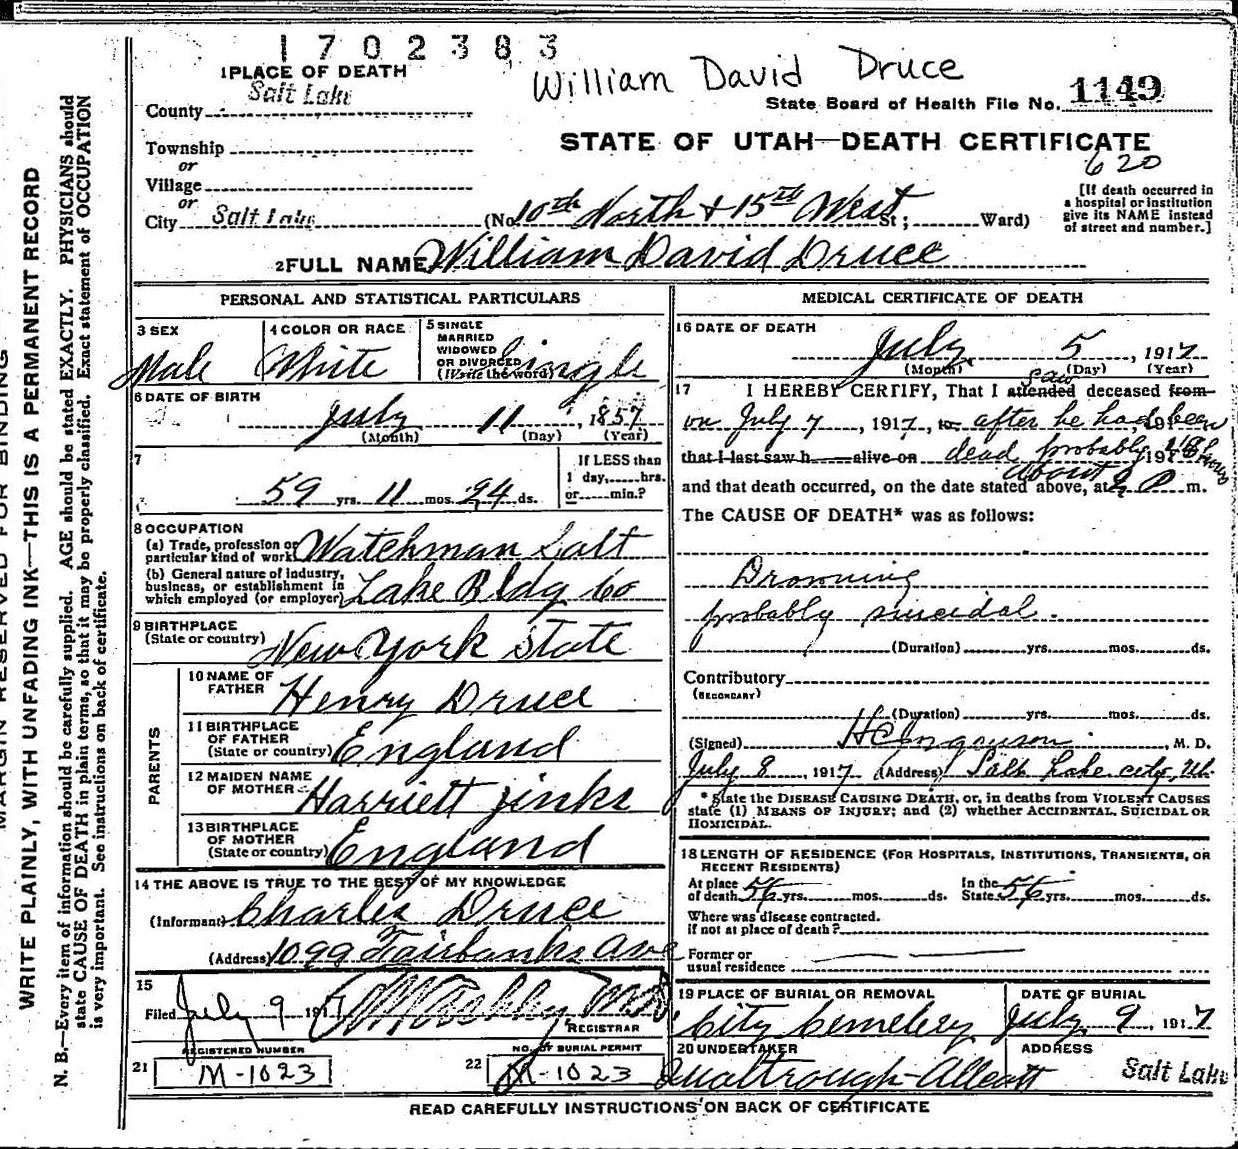 1702383
1 PLACE OF DEATH
William David Druce
County Salt Lake
State Board of Health File No. 1149
STATE OF UTAH—DEATH CERTIFICATE
620
Township
or
Village
or
City Salt Lake (No. 10th North & 15th West St; Ward)
[If death occurred in
a hospital or institution
give its NAME instead
of street and number.]
2 FULL NAME William David Druce
PERSONAL AND STATISTICAL PARTICULARS
3 SEX
Male
4 COLOR OR RACE
White
5 SINGLE
MARRIED
WIDOWED
OR DIVORCED
(Write the word)
Single
6 DATE OF BIRTH
July 11, 1857
(Month) (Day) (Year)
7
59 yrs. 11 mos. 24 ds.
If LESS than
1 day, hrs.
or min.?
8 OCCUPATION
(a) Trade, profession or
particular kind of work Watchman Salt
(b) General nature of industry,
business, or establishment in
which employed (or employer) Lake Bldg Co
9 BIRTHPLACE
(State or country) New York State
PARENTS
10 NAME OF
FATHER Henry Druce
11 BIRTHPLACE
OF FATHER
(State or country) England
12 MAIDEN NAME
OF MOTHER Harriett Jinks
13 BIRTHPLACE
OF MOTHER
(State or country) England
14 THE ABOVE IS TRUE TO THE BEST OF MY KNOWLEDGE
(Informant) Charles Druce
(Address) 1099 Fairbanks Ave
15
Filed July 9 1917
REGISTRAR
REGISTERED NUMBER
21 M-1023
NO. OF BURIAL PERMIT
22 M-1023
MEDICAL CERTIFICATE OF DEATH
16 DATE OF DEATH
July 5, 1917
(Month) (Day) (Year)
saw
17 I HEREBY CERTIFY, That I attended deceased from
on July 7, 1917, to after he had been
that I last saw h alive on dead probably
about
and that death occurred, on the date stated above, at P m.
The CAUSE OF DEATH* was as follows:
Drowning
probably suicidal.
(Duration) yrs. mos. ds.
Contributory
(SECONDARY)
(Duration) yrs. mos. ds.
(Signed) , M. D.
July 8, 1917 (Address) Salt Lake city, Ut.
* State the DISEASE CAUSING DEATH, or, in deaths from VIOLENT CAUSES
state (1) MEANS OF INJURY; and (2) whether ACCIDENTAL, SUICIDAL OR
HOMICIDAL.
18 LENGTH OF RESIDENCE (FOR HOSPITALS, INSTITUTIONS, TRANSIENTS, OR
RECENT RESIDENTS)
At place
of death 56 yrs. mos. ds.
In the
State 56 yrs. mos. ds.
Where was disease contracted.
if not at place of death?
Former or
usual residence
19 PLACE OF BURIAL OR REMOVAL
City Cemetery
DATE OF BURIAL
July 9, 1917
20 UNDERTAKER
ADDRESS
Salt Lake
READ CAREFULLY INSTRUCTIONS ON BACK OF CERTIFICATE
MARGIN RESERVED FOR BINDING
WRITE PLAINLY, WITH UNFADING INK—THIS IS A PERMANENT RECORD
N. B.—Every item of information should be carefully supplied. AGE should be stated EXACTLY. PHYSICIANS should
state CAUSE OF DEATH in plain terms, so that it may be properly classified. Exact statement of OCCUPATION
is very important. See instructions on back of certificate.